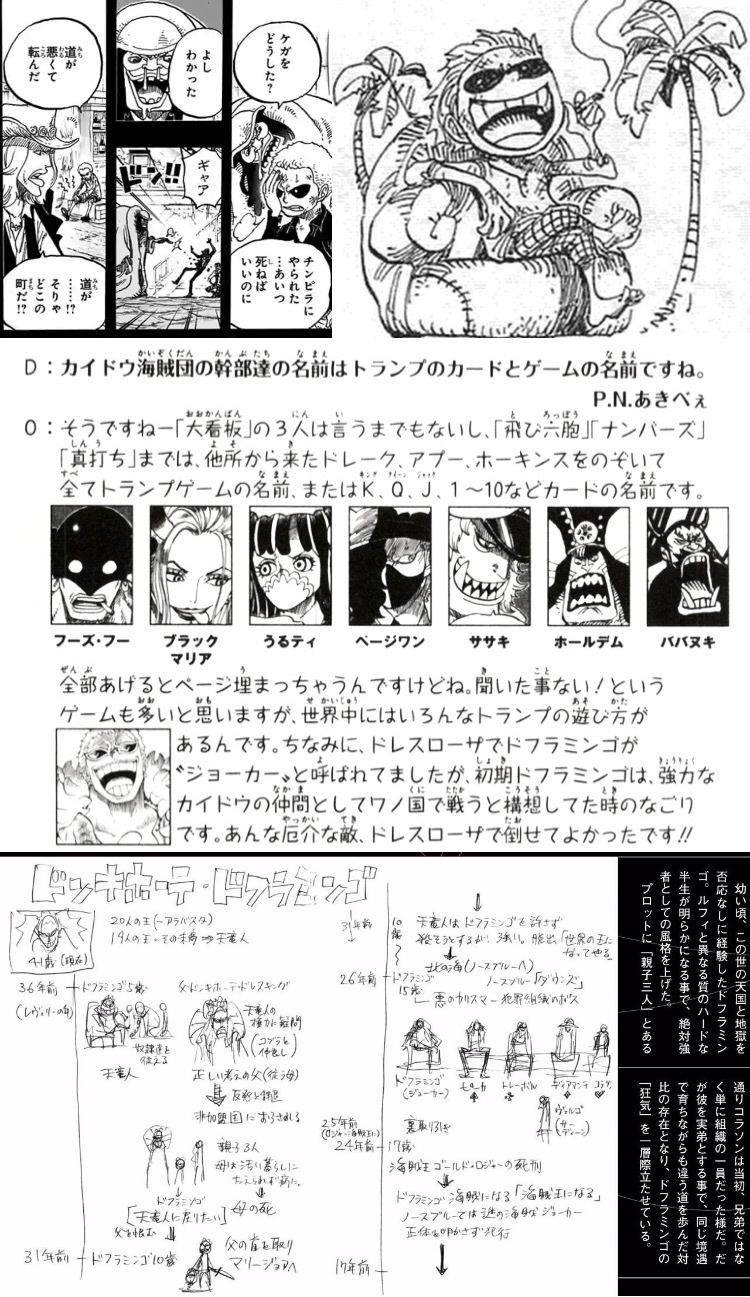 ケガを
どうした？
チンピラに
やられた
…あいつ
死ねば
いいのに
よし
わかった
ギャア
ドン!!
道が
悪くて
転んだ
道が
……!?
そりゃ
どこの
町だ!?
D：カイドウ海賊団の幹部達の名前はトランプのカードとゲームの名前ですね。
P.N.あきべぇ
O：そうですねー「大看板」の3人は言うまでもないし、「飛び六胞」「ナンバーズ」
「真打ち」までは、他所から来たドレーク、アプー、ホーキンスをのぞいて
全てトランプゲームの名前、またはK、Q、J、1～10などカードの名前です。
フーズ・フー
ブラック
マリア
うるティ
ページワン
ササキ
ホールデム
ババヌキ
全部あげるとページ埋まっちゃうんですけどね。聞いた事ない！という
ゲームも多いと思いますが、世界中にはいろんなトランプの遊び方が
あるんです。ちなみに、ドレスローザでドフラミンゴが
〝ジョーカー〟と呼ばれてましたが、初期ドフラミンゴは、強力な
カイドウの仲間としてワノ国で戦うと構想してた時のなごり
です。あんな厄介な敵、ドレスローザで倒せてよかったです!!
ドンキホーテ・ドフラミンゴ
41歳（現在）
20人の王（－アラバスタ）
19人の王－その末裔⇒天竜人
36年前
（レヴェリーの年）
ドフラミンゴ5歳
奴隷達を
従える
天竜人
父ドンキホーテ・ドレスキング
天竜人の
権力に疑問
（コブラと
仲良し）
正しい考えの父（従う母）
非加盟国におろされる
親子3人
母は汚い暮らしに
たえられず病に。
母の死
ドフラミンゴ
［天竜人に戻りたい］
父を恨む
父の首を取り
マリージョアへ
31年前
ドフラミンゴ10歳
31年前
10歳
天竜人はドフラミンゴを許さず
脱出「世界の王に
なってやる」
北の海（ノースブルーへ）
26年前
ドフラミンゴ
15歳
ノースブルー「ダウンズ」
悪のカリスマー犯罪組織のボス
ドフラミンゴ
（ジョーカー）
トレーボル
ディアマンテ
コラソン
ヴェルゴ
25年前
裏取り引き
24年前
17歳
海賊王ゴールド・ロジャーの死刑
ドフラミンゴ海賊になる「海賊王になる」
ノースブルーでは謎の海賊ジョーカー
正体を明かさず犯行
17年前
幼い頃、この世の天国と地獄を
否応なしに経験したドフラミン
ゴ。ルフィと異なる質のハードな
半生が明らかになる事で、絶対強
者としての風格を上げた。
プロットに「親子三人」とある
通りコラソンは当初、兄弟ではな
く単に組織の一員だった様だ。だ
が彼を実弟とする事で、同じ境遇
で育ちながらも違う道を歩んだ対
比の存在となり、ドフラミンゴの
「狂気」を一層際立たせている。